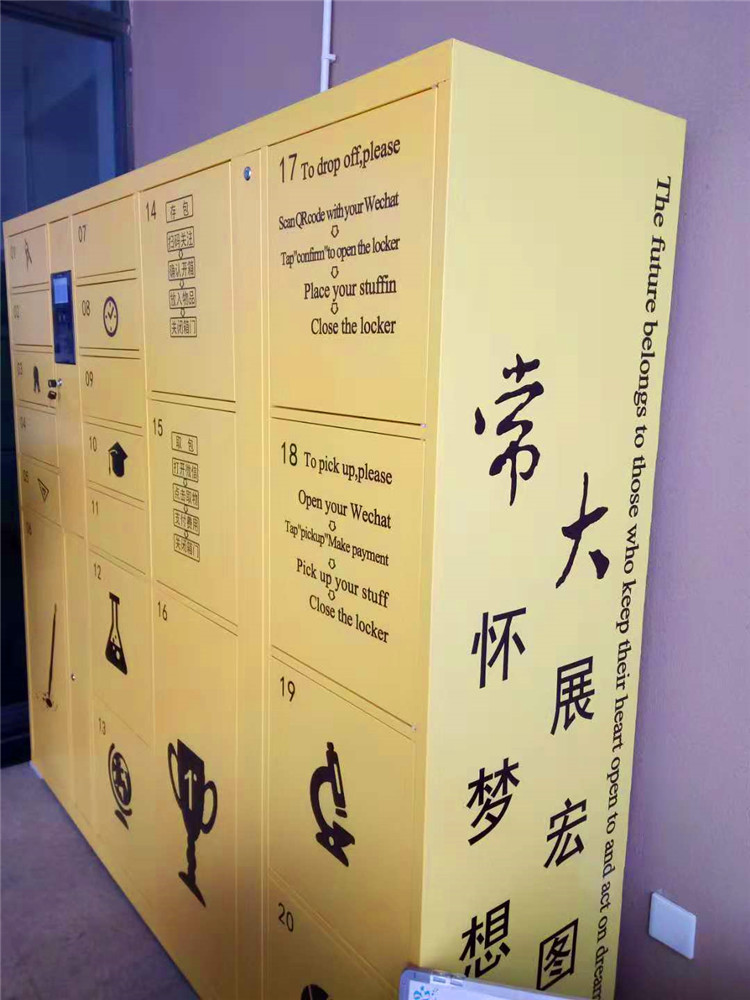 01
02
03
04
05
06
07
08
09
10
11
12
13
14
存包
扫码关注
确认开箱
放入物品
关闭箱门
15
取包
打开微信
点击取物
支付费用
关闭箱门
16
1
17 To drop off,please
Scan QRcode with your Wechat
Tap"confirm"to open the locker
Place your stuffin
Close the locker
18 To pick up,please
Open your Wechat
Tap"pickup"Make payment
Pick up your stuff
Close the locker
19
20
常怀梦想
大展宏图
The future belongs to those who keep their heart open to and act on dream